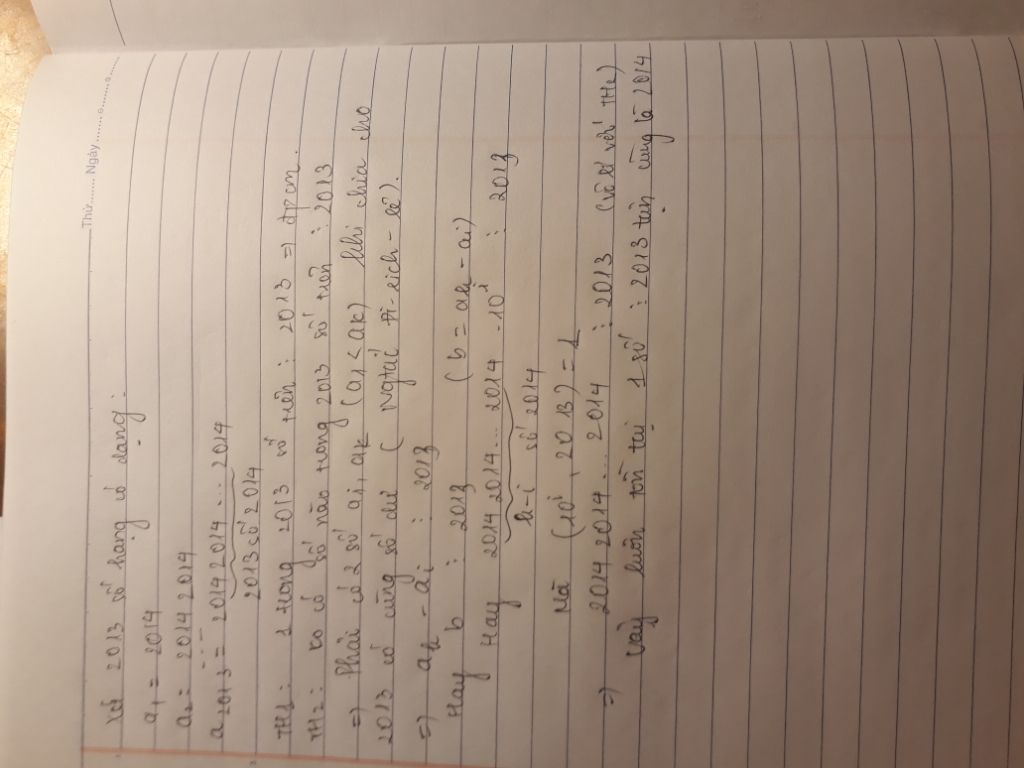 Thứ....... Ngày........
Xét 2013 số hạng có dạng :
a1 = 2014
a2 = 2014 2014
...
a2013 = 2014 2014 ... 2014
2013 số 2014
TH1: 1 trong 2013 số trên ⋮ 2013 => đpcm.
TH2: ko có số nào trong 2013 số trên ⋮ 2013
=> Phải có 2 số ai, ak (ai < ak) khi chia cho
2013 có cùng số dư ( Nglí Đi-rich-lê).
=> ak - ai ⋮ 2013
Hay b ⋮ 2013 (b = ak - ai)
Hay 2014 2014 ... 2014 . 10^i ⋮ 2013
k-i số 2014
Mà (10^i, 2013) = 1
=> 2014 2014 ... 2014 ⋮ 2013
Vậy luôn tồn tại 1 số ⋮ 2013 tận cùng là 2014